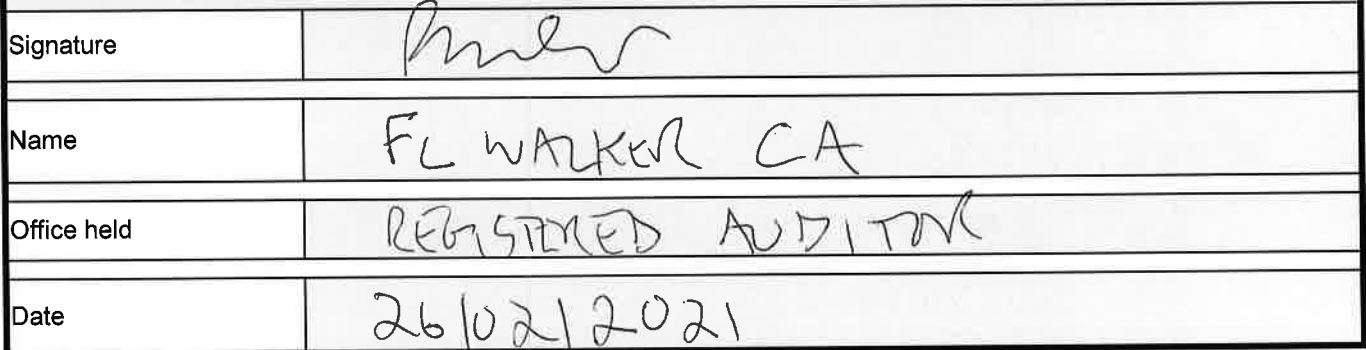 Signature
Name FL WALKER CA
Office held REGISTERED AUDITOR
Date 26/02/2021